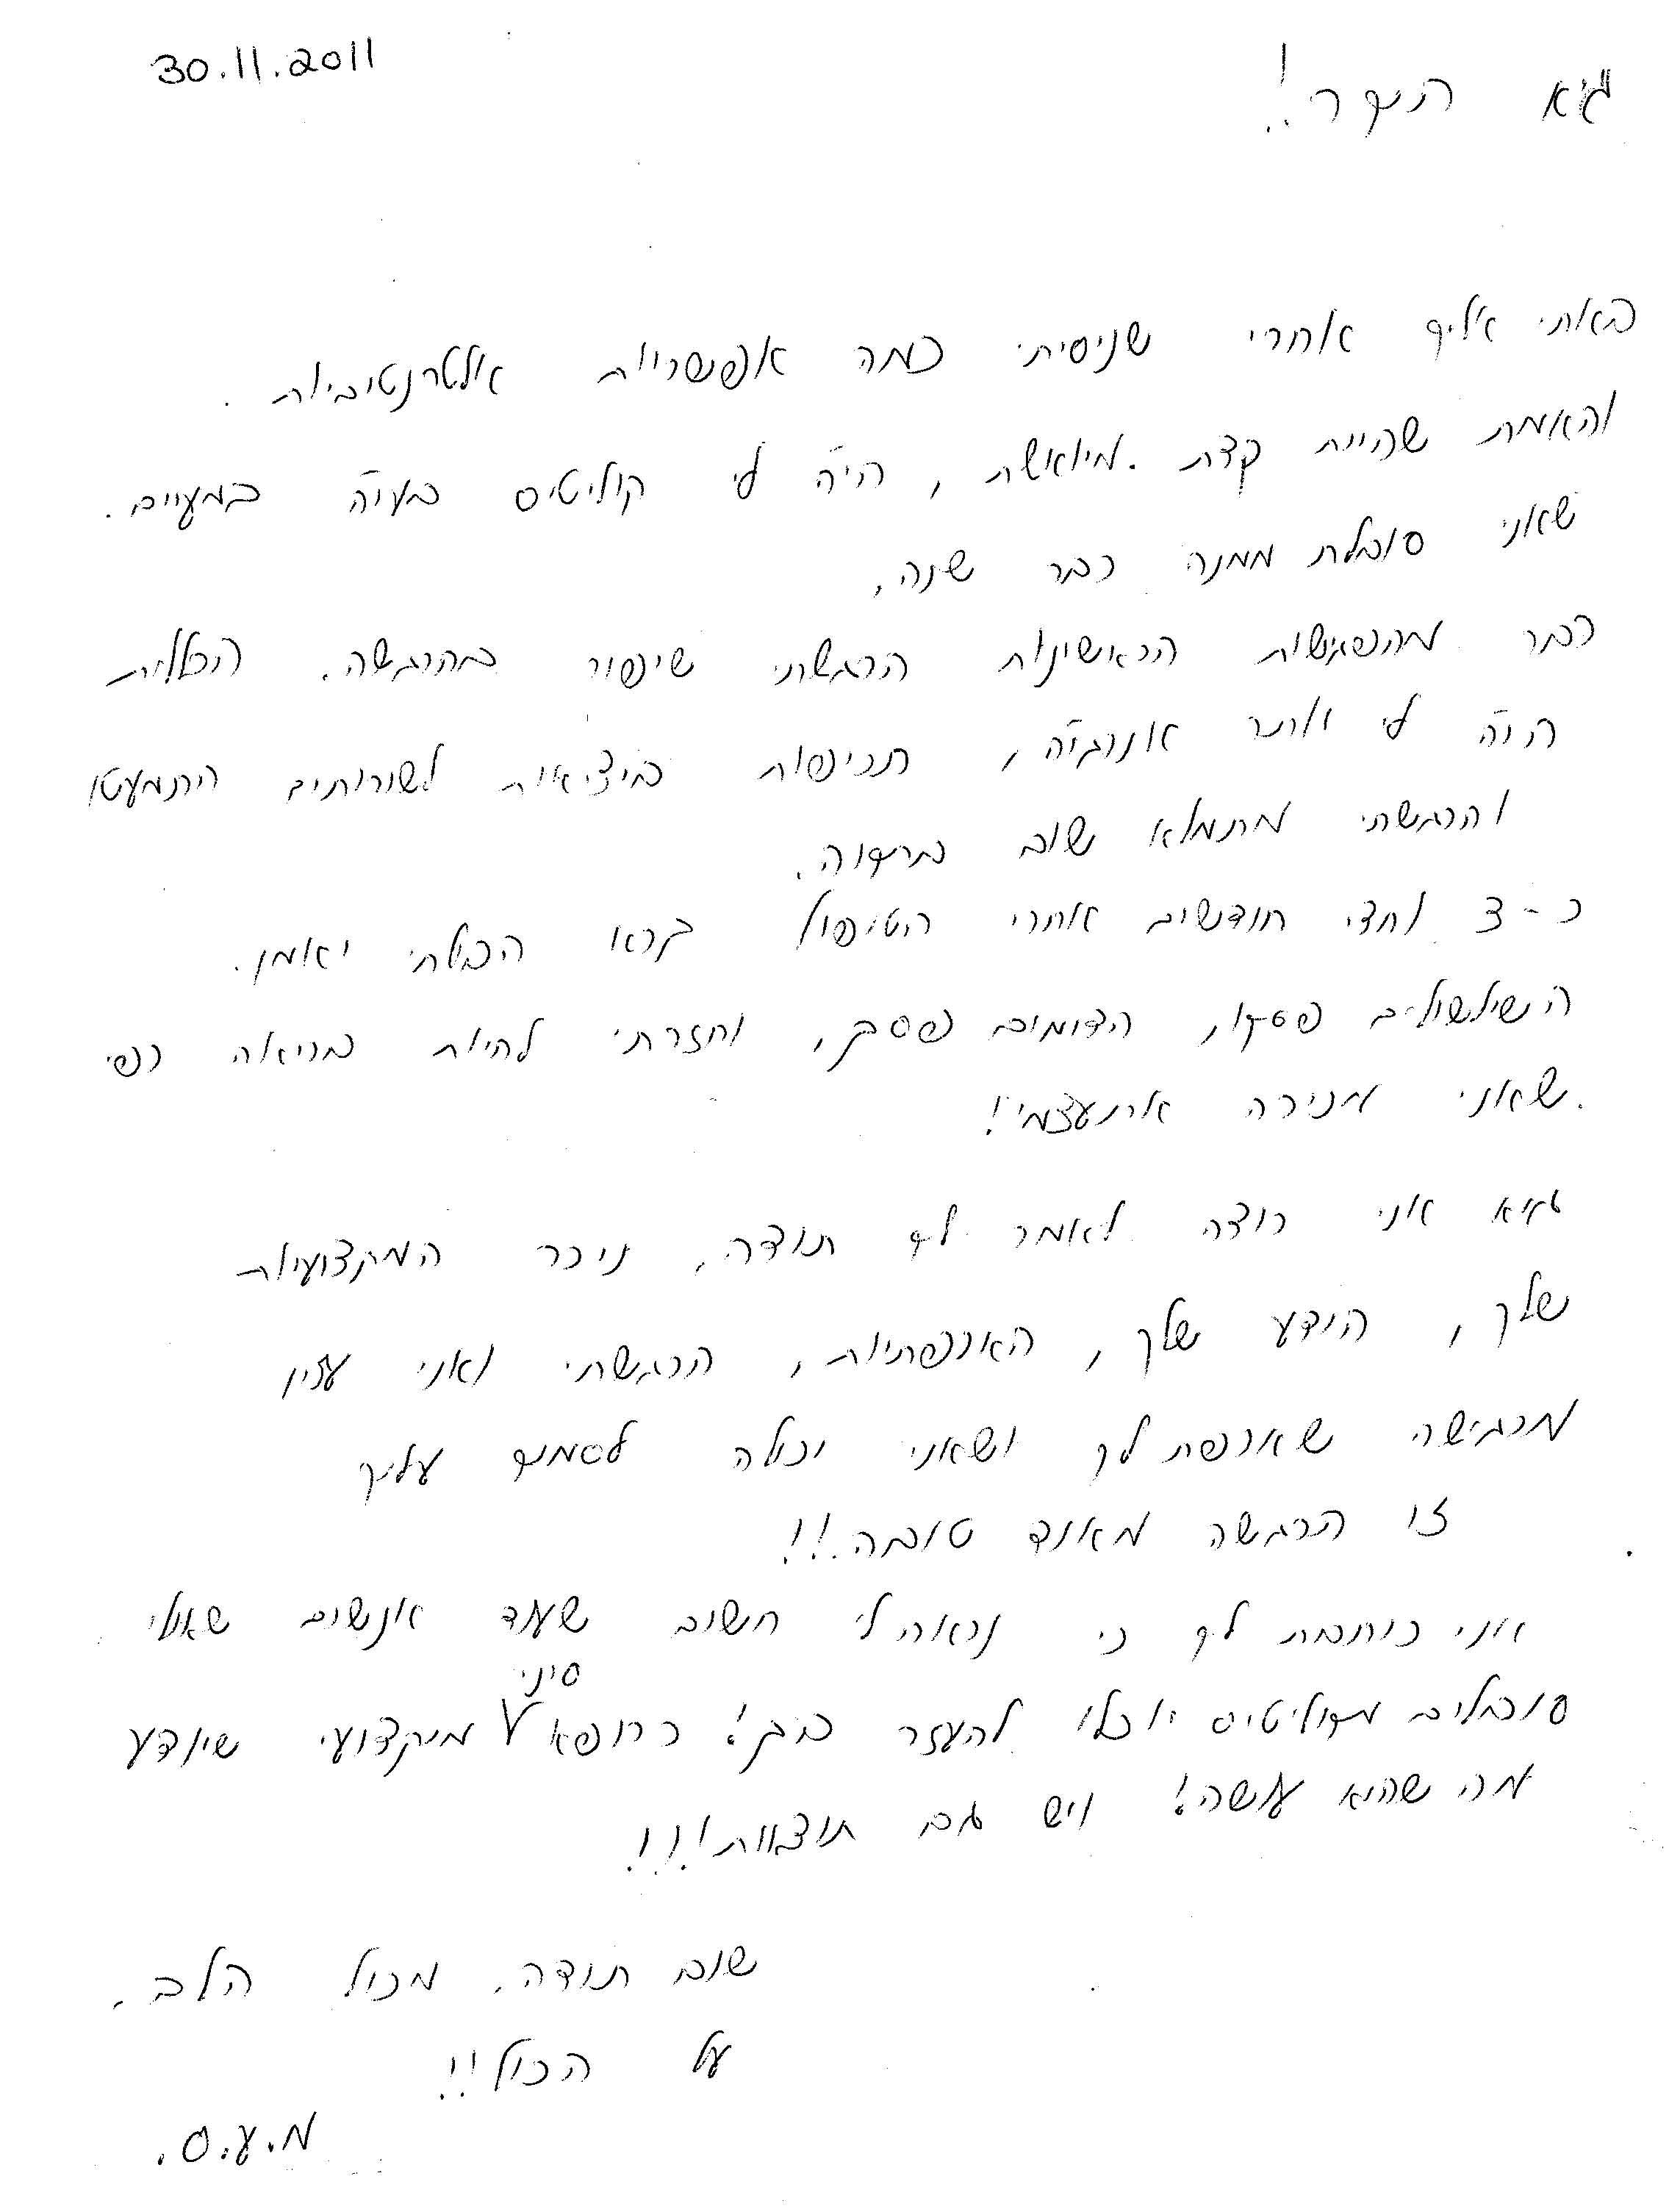 30.11.2011
גיא היקר!!
באתי אליך אחרי שניסיתי כמה אפשריות אלטרנטיביות.
והאמת שהיית קצת מיואשת, היה לי קוליטיס בעיה במעיים.
שאני סובלת ממנה כבר שנה,
כבר מהפגישות הראשינות הרגשתי שיפור בהרגשה. הכללית
היה לי יותר אנרגיה, תכיפות ביציאות לשרותים התמעטו
והרגשתי מתמלא שוב בתקווה.
כ-3 וחצי חודשים אחרי הטיפול קרא הבלתי יאומן.
השילשולים פסקו, הדומים פסק, וחזרתי להיות בריאה כפי
שאני מכירה את עצמי!
גיא אני רוצה לאמר לך תודה, ניכר המקצועיות
שלך, הידע שלך, האכפתיות, הרגשתי ואני עדין
מרגישה שאכפת לך ושאני יכולה לסמוך עליך
זו הרגשה מאוד טובה.!!
אני כותבת לך כי נראה לי חשוב שעוד אנשים שאולי
סובלים מקוליטיס יוכלו להעזר בך! כרופא סיני מיקצועי שיודע
מה שהוא עושה! ויש גם תוצאות!!!
שוב תודה. מכול הלב.
על הכול!!
מ.ע.ס.